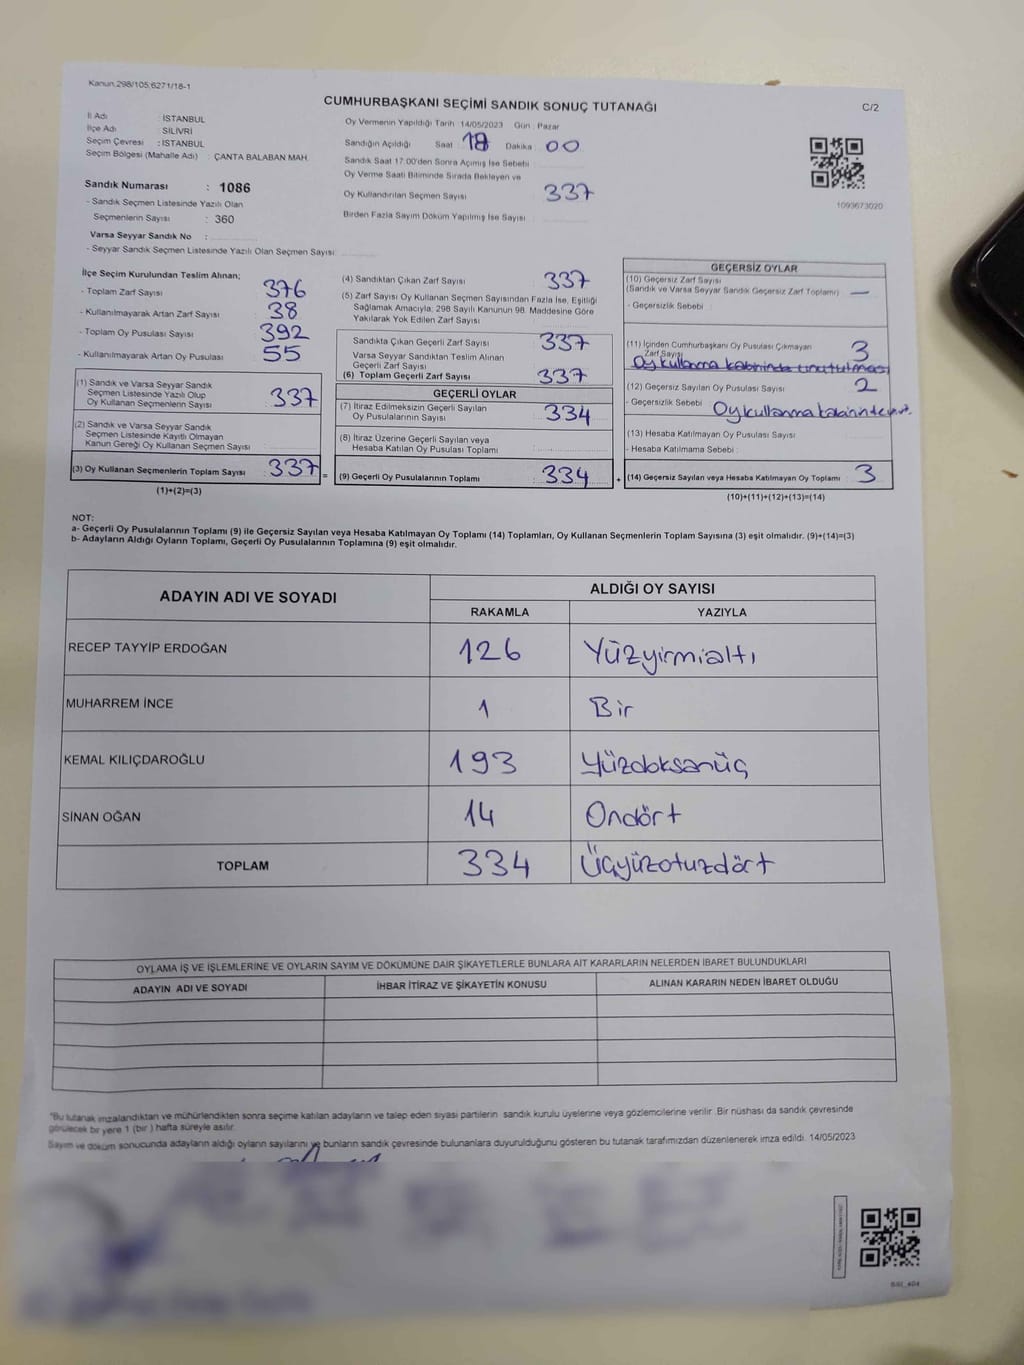 Kanun.298/105;6271/18-1
CUMHURBAŞKANI SEÇİMİ SANDIK SONUÇ TUTANAĞI
C/2
İl Adı : İSTANBUL
İlçe Adı : SİLİVRİ
Seçim Çevresi : İSTANBUL
Seçim Bölgesi (Mahalle Adı) : ÇANTA BALABAN MAH.
Sandık Numarası : 1086
- Sandık Seçmen Listesinde Yazılı Olan
Seçmenlerin Sayısı : 360
Varsa Seyyar Sandık No :
- Seyyar Sandık Seçmen Listesinde Yazılı Olan Seçmen Sayısı:
Oy Vermenin Yapıldığı Tarih :14/05/2023 Gün : Pazar
Sandığın Açıldığı Saat : 18 Dakika : 00
Sandık Saat 17:00'den Sonra Açılmış İse Sebebi :
Oy Verme Saati Bitiminde Sırada Bekleyen ve
Oy Kullandırılan Seçmen Sayısı : 337
Birden Fazla Sayım Döküm Yapılmış İse Sayısı :
1093673020
İlçe Seçim Kurulundan Teslim Alınan;
- Toplam Zarf Sayısı : 376
- Kullanılmayarak Artan Zarf Sayısı : 38
- Toplam Oy Pusulası Sayısı : 392
- Kullanılmayarak Artan Oy Pusulası : 55
(1) Sandık ve Varsa Seyyar Sandık
Seçmen Listesinde Yazılı Olup
Oy Kullanan Seçmenlerin Sayısı : 337
(2) Sandık ve Varsa Seyyar Sandık
Seçmen Listesinde Kayıtlı Olmayan
Kanun Gereği Oy Kullanan Seçmen Sayısı :
(3) Oy Kullanan Seçmenlerin Toplam Sayısı : 337
(1)+(2)=(3)
(4) Sandıktan Çıkan Zarf Sayısı : 337
(5) Zarf Sayısı Oy Kullanan Seçmen Sayısından Fazla İse, Eşitliği
Sağlamak Amacıyla; 298 Sayılı Kanunun 98. Maddesine Göre
Yakılarak Yok Edilen Zarf Sayısı :
Sandıkta Çıkan Geçerli Zarf Sayısı : 337
Varsa Seyyar Sandıktan Teslim Alınan
Geçerli Zarf Sayısı :
(6) Toplam Geçerli Zarf Sayısı : 337
GEÇERLİ OYLAR
(7) İtiraz Edilmeksizin Geçerli Sayılan
Oy Pusulasının Sayısı : 334
(8) İtiraz Üzerine Geçerli Sayılan veya
Hesaba Katılan Oy Pusulası Toplamı :
(9) Geçerli Oy Pusulalarının Toplamı : 334
GEÇERSİZ OYLAR
(10) Geçersiz Zarf Sayısı
(Sandık ve Varsa Seyyar Sandık Geçersiz Zarf Toplamı) : —
- Geçersizlik Sebebi :
(11) İçinden Cumhurbaşkanı Oy Pusulası Çıkmayan
Zarf Sayısı : 3
Oy kullanma kabininde unutulması
(12) Geçersiz Sayılan Oy Pusulası Sayısı : 2
- Geçersizlik Sebebi : Oy kullanma kabininde
(13) Hesaba Katılmayan Oy Pusulası Sayısı :
- Hesaba Katılmama Sebebi :
(14) Geçersiz Sayılan veya Hesaba Katılmayan Oy Toplamı : 3
(10)+(11)+(12)+(13)=(14)
NOT:
a- Geçerli Oy Pusulalarının Toplamı (9) ile Geçersiz Sayılan veya Hesaba Katılmayan Oy Toplamı (14) Toplamları, Oy Kullanan Seçmenlerin Toplam Sayısına (3) eşit olmalıdır. (9)+(14)=(3)
b- Adayların Aldığı Oyların Toplamı, Geçerli Oy Pusulalarının Toplamına (9) eşit olmalıdır.
ADAYIN ADI VE SOYADI ALDIĞI OY SAYISI
RAKAMLA YAZIYLA
RECEP TAYYİP ERDOĞAN 126 Yüzyirmialtı
MUHARREM İNCE 1 Bir
KEMAL KILIÇDAROĞLU 193 Yüzdoksanüç
SİNAN OĞAN 14 Ondört
TOPLAM 334 Üçyüzotuzdört
OYLAMA İŞ VE İŞLEMLERİNE VE OYLARIN SAYIM VE DÖKÜMÜNE DAİR ŞİKAYETLERLE BUNLARA AİT KARARLARIN NELERDEN İBARET BULUNDUKLARI
ADAYIN ADI VE SOYADI İHBAR İTİRAZ VE ŞİKAYETİN KONUSU ALINAN KARARIN NEDEN İBARET OLDUĞU
*Bu tutanak imzalandıktan ve mühürlendikten sonra seçime katılan adayların ve talep eden siyasi partilerin sandık kurulu üyelerine veya gözlemcilerine verilir. Bir nüshası da sandık çevresinde
görülecek bir yere 1 (bir ) hafta süreyle asılır.
Sayım ve döküm sonucunda adayların aldığı oyların sayılarını ve bunların sandık çevresinde bulunanlara duyurulduğunu gösteren bu tutanak tarafımızdan düzenlenerek imza edildi. 14/05/2023